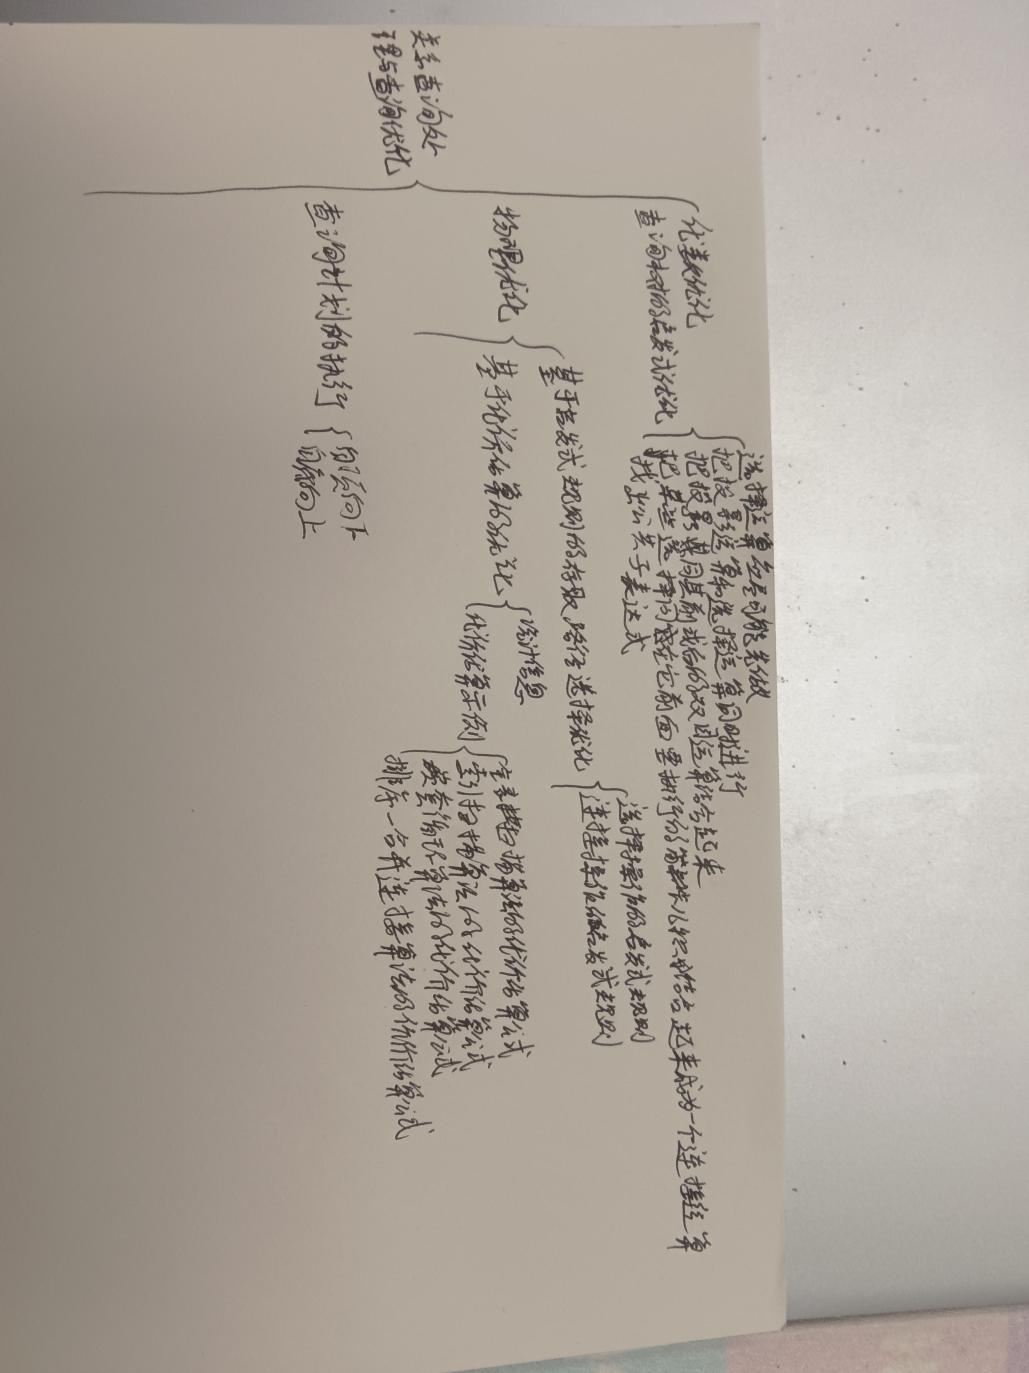 关系查询处
理与查询优化
代数优化
查询树的启发式优化
选择运算应尽可能先做
把投影运算和选择运算同时进行
把投影同其前或后的双目运算结合起来
把某些选择同在它前面要执行的笛卡儿积结合起来成为一个连接运算
找出公共子表达式
物理优化
基于启发式规则的存取路径选择优化
选择操作的启发式规则
连接操作的启发式规则
基于代价估算的优化
统计信息
代价估算示例
全表扫描算法的代价估算公式
索引扫描算法的代价估算公式
嵌套循环算法的代价估算公式
排序-合并连接算法的代价估算公式
查询计划的执行
自顶向下
自底向上